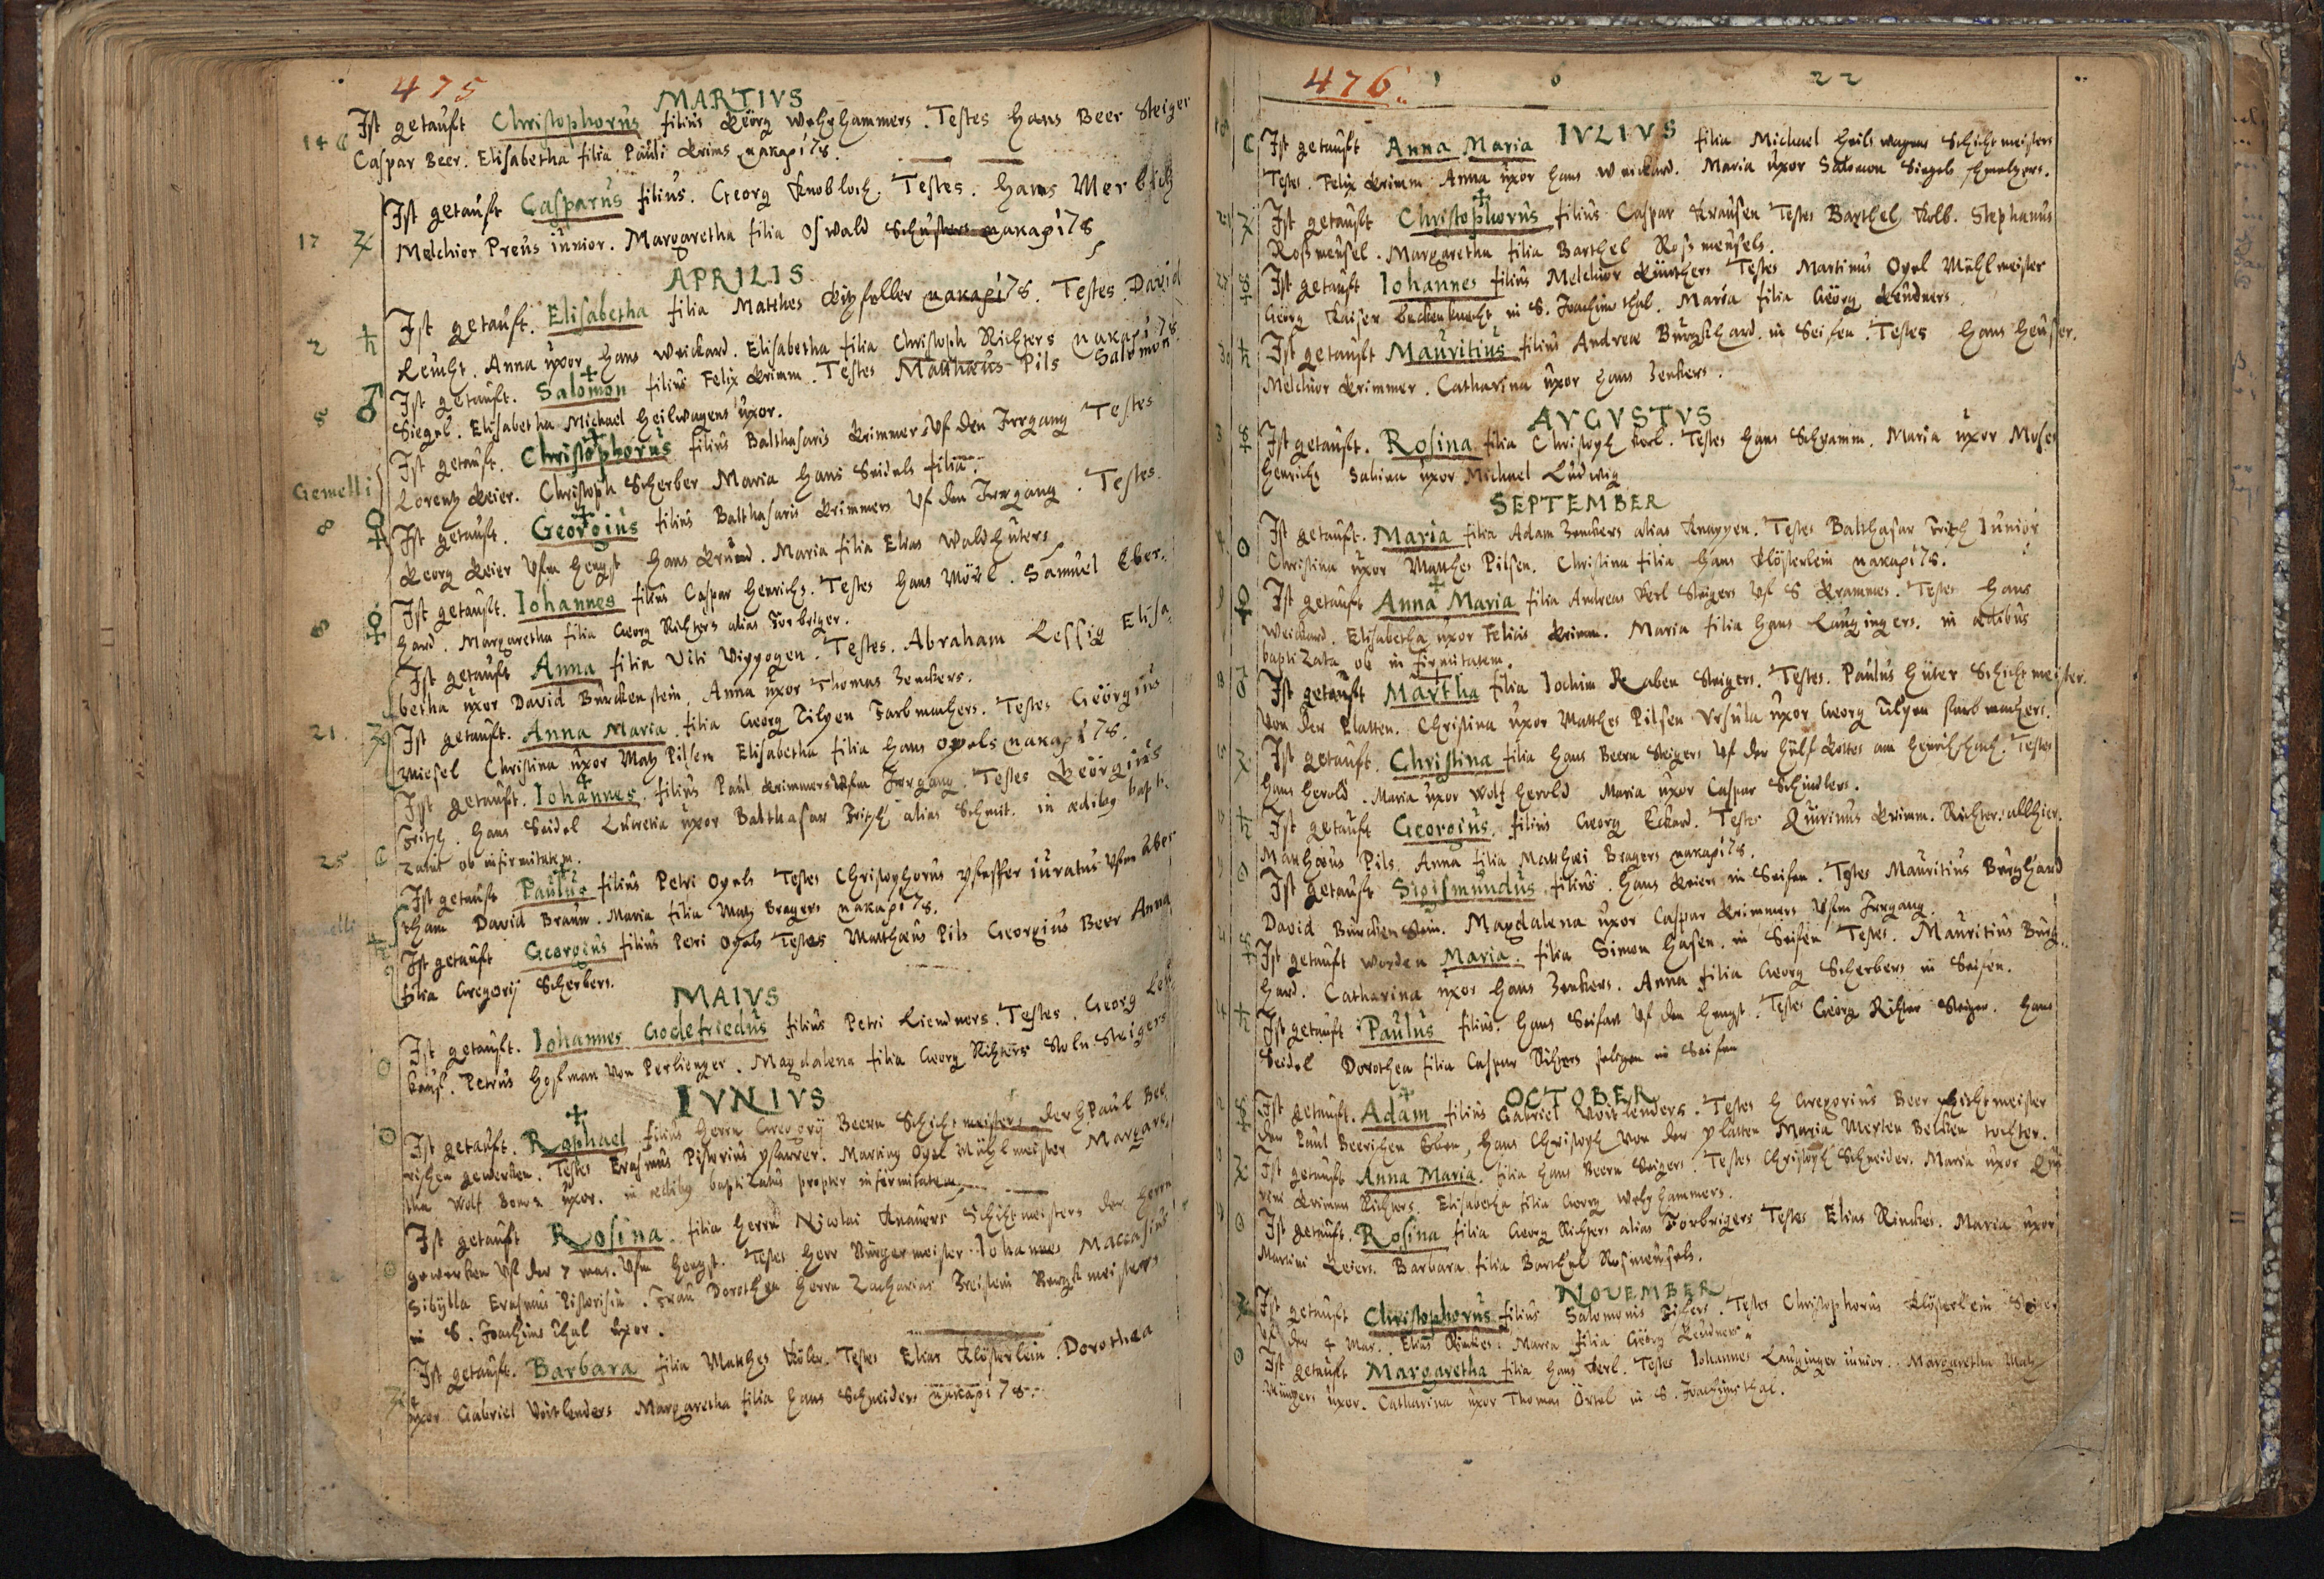 475
MARTIVS
14 ☾ Ist getaufft Christophorus filius Georg Wehrhammers. Testes Hans Beer Steiger
Caspar Beer. Elisabetha filia Pauli Krims μακαρίτ8.
17 ♃ Ist getaufft Casparus filius. Georg Knobloch. Testes. Hans
Melchior Preus iunior. Margaretha filia Oswald Schusters μακαρίτ8
APRILIS
2 ♄ Ist getaufft. Elisabetha filia Matthes μακαρίτ8. Testes. David
Anna uxor Hans Weickard. Elisabetha filia Christoph Richters μακαρίτ8.
5 ♂ Ist getaufft. Salomon filius Felix Krimm. Testes Matthæus Pils Salomon
Siegel. Elisabetha Michael Heilwagens uxor.
Gemelli Ist getaufft. Christophorus filius Balthasaris Krimmers uf den Irrgang Testes
Lorentz Christoph Scherber Maria Hans Seidels filia.
8 ♀ Ist getaufft. Georgius filius Balthasaris Krimmers uf den Irrgang. Testes.
Georg ufm Hengst Hans Maria filia Elias Waldhüters
8 ♀ Ist getaufft. Iohannes filius Caspar Henrichs. Testes Hans Samuel Eber-
hard. Margaretha filia Georg Richters alias Forbriger.
Ist getaufft Anna filia Viti Testes. Abraham Lessig Elisa-
betha uxor David Burckenstein. Anna uxor Thomas Zenckers.
21. ♃ Ist getaufft. Anna Maria filia Georg Tilpen Farbmachers. Testes Georgius
Christina uxor Matz Pilsen Elisabetha filia Hans Opels μακαρίτ8.
Ist getaufft. Iohannes filius Paul Krimmers ufm Irrgang. Testes Georgius
Fritzsch. Hans Seidel Lucretia uxor Balthasar Fritzsch alias Schmit. in ædibus bapti-
25 ☾ zatus ob infirmitatem.
Ist getaufft Paulus filius Petri Opels Testes Christophorus iuratus ufm Aber
tham David Braun. Maria filia Matz Bragers μακαρίτ8.
♄ Ist getaufft Georgius filius Petri Opels Testes Matthæus Pils Georgius Beer Anna
filia Gregorij Scherbers.
MAIVS
☉ Ist getaufft. Iohannes Godefriedus filius Petri Testes. Georg
Petrus Hofman von Perlienger. Magdalena filia Georg Richters Steigers
IVNIVS
☉ Ist getaufft. Raphael filius Herrn Gregorij Beern Schichtmeisters der H Paul Bee-
rischen gewercken. Testes Erasmus Pistorius pfarrer. Martinus Opel Mühlmeister Margare-
tha Wolf uxor. in ædibus baptizatus propter infirmitatem.
Ist getaufft Rosina filia Herrn Nicolai Knauers Schichtmeisters der Herrn
☉ gewercken uf der ufm Hengst. Testes Herr Bürgermeister Iohannes Maccasius
Sibylla Erasmus Pistorisin. Frau Dorothea Herrn Zacharias Bergkmeisters
in S. Joachims thal uxor.
♃ Ist getaufft. Barbara filia Matthes Testes Elias Klösterlein. Dorothea
uxor Gabriel Voitlenders Margaretha filia Hans Schneiders μακαρίτ8.
476. 1 6 22
IVLIVS
☾ Ist getaufft Anna Maria filia Michael Heilwagens Schichtmeisters
Testes. Felix Krimm Anna uxor Hans Weickard. Maria uxor Salomon Siegels
♃ Ist getaufft Christophorus filius Caspar Krausen Testes Barthel Kolb. Stephanus
Rosmeusel. Margaretha filia Barthel Rosmeusels.
☿ Ist getaufft Iohannes filius Melchior Testes Martinus Opel Mühlmeister
Georg Kaiser beckenknecht in S. Joachimsthal. Maria filia Georg
♄ Ist getaufft Mauritius filius Andreæ Burgkhard. in Seifen. Testes Hans Heuser.
Melchior Krimmer. Catharina uxor Hans Zenkers.
AVGVSTVS
☿ Ist getaufft. Rosina filia Christoph Testes Hans Schramm. Maria uxor Moses
Henrichs Sabina uxor Michael Ludwig
SEPTEMBER
☉ Ist getaufft. Maria filia Adam Zenckers alias Knappen. Testes Balthasar Fritzsch Iunior
Christina uxor Matthes Pilsen. Christina filia Hans Klösterlein μακαρίτ8.
♀ Ist getaufft Anna Maria filia Andreas Steigers Testes Hans
Weickard. Elisabetha uxor Felicis Krimm. Maria filia Hans Laugingers. in ædibus
baptizata ob infirmitatem.
♂ Ist getaufft Martha filia Iochim Raben Steigers. Testes. Paulus Hüter Schichtmeister
von der Platten. Christina uxor Matthes Pilsen Ursula uxor Georg Tilpen farbmachers.
♃ Ist getaufft. Christina filia Hans Beern Steigers uf der Hülf Gottes am Testes
Hans Herold. Maria uxor Wolf Herold Maria uxor Caspar Schindlers.
♄ Ist getaufft Georgius. filius Georg Eckard. Testes Quirinus Krimm. Richter allhier.
Matthæus Pils. Anna filia Matthæi Bragers μακαρίτ8.
☉ Ist getaufft Sigismundus filius. Hans in Seifen. Testes Mauritius Burghard
David Burckenstein. Magdalena uxor Caspar Krimmers ufm Irrgang.
☿ Ist getaufft worden Maria. filia Simon Hasen. in Seifen Testes. Mauritius Burg-
hard. Catharina uxor Hans Zenkers. Anna filia Georg Scherbers in Seifen.
♄ Ist getaufft Paulus filius. Hans Seifart uf den Hengst. Testes Georg Richter Steiger. Hans
Seidel Dorothea filia Caspar seligen in Seifen
OCTOBER
☿ Ist getaufft. Adam filius Gabriel Voitlenders. Testes H Gregorius Beer schichtmeister
der Paul Beerischen Erben, Hans Christoph von der platten Maria Merten tochter.
♃ Ist getaufft Anna Maria. filia Hans Beern Steigers. Testes Christoph Schneider. Maria uxor Qui-
rini Krimms Richters. Elisabetha filia Georg Wehrhammers.
☉ Ist getaufft. Rosina filia Georg Richters alias Forbrigers Testes Elias Rinckes. Maria uxor
Martini Barbara filia Barthel Rosmeusels.
NOVEMBER
♃ Ist getaufft Christophorus filius Salomonis Testes Christophorus Klösterlein Steiger
uf der 4 Mas. Elias Rinckes. Maria filia Georg
☉ Ist getaufft Margaretha filia Hans Testes Iohannes Lauginger iunior. Margaretha Matz
uxor. Catharina uxor Thomas Örtel in S. Joachimsthal.